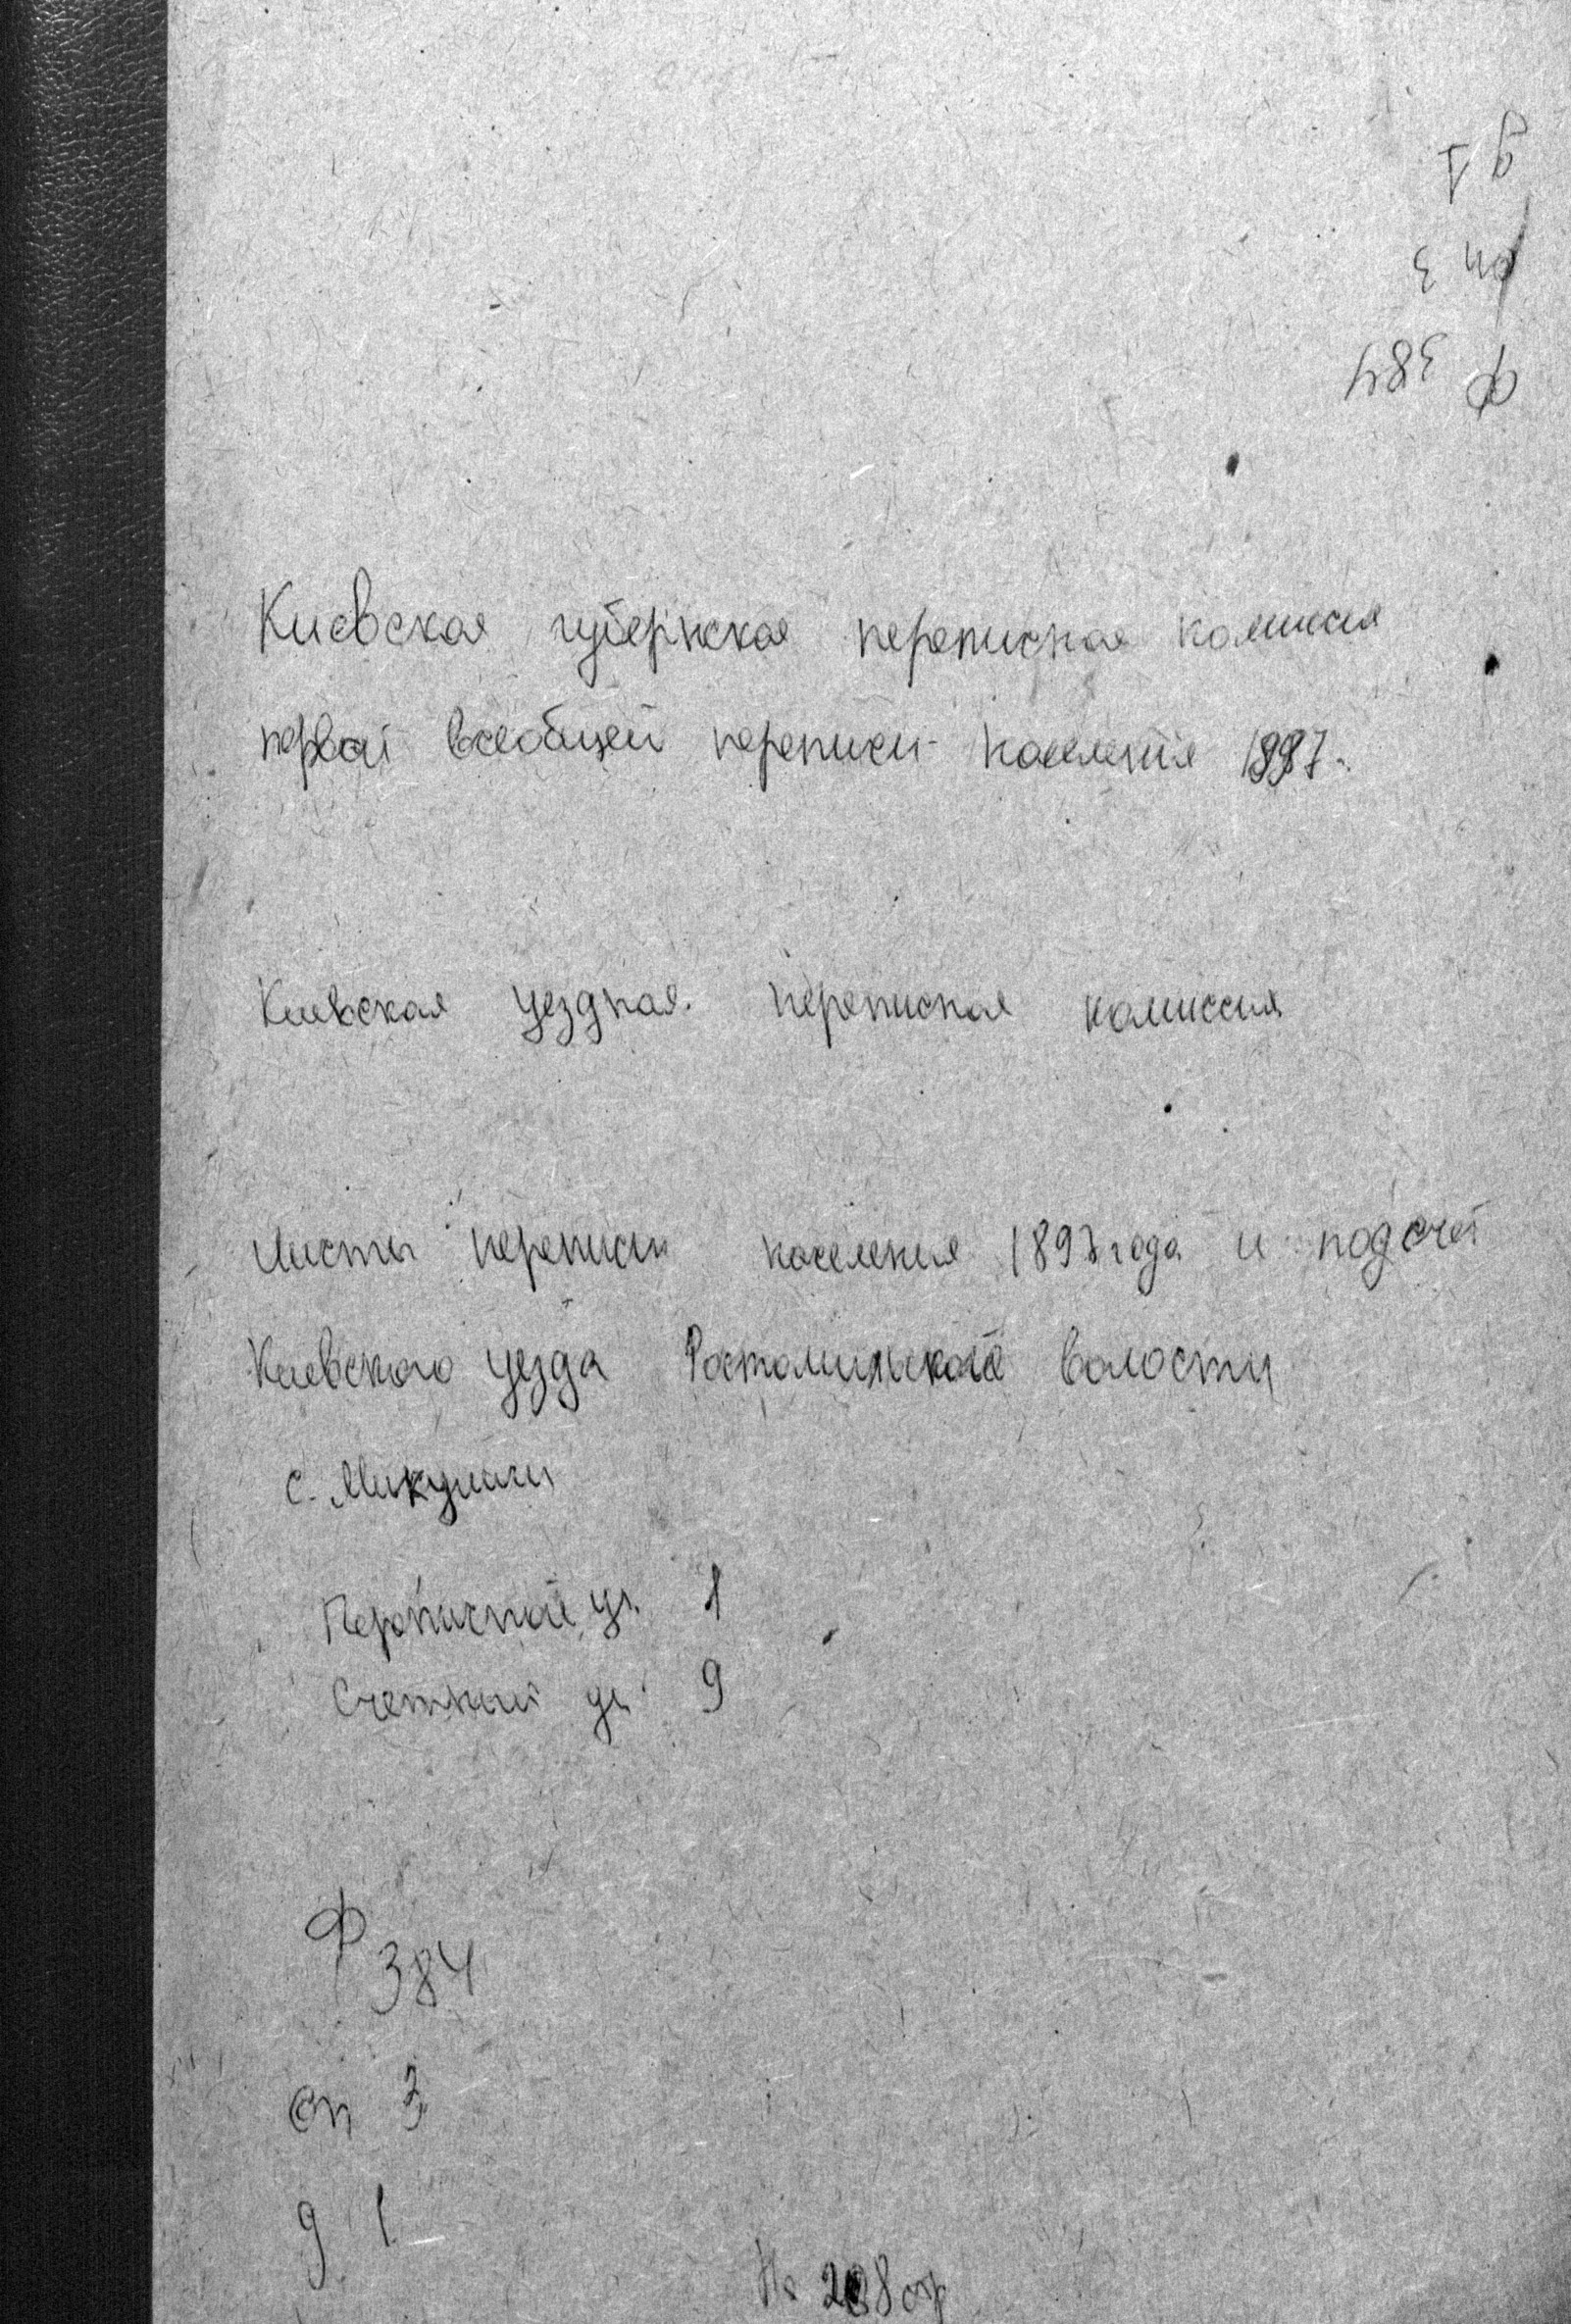 д 1
оп 3
Ф 384
Киевская губернская переписная комиссия
первой всеобщей переписи населения 1897.
Киевская уездная переписная комиссия
Листы переписи населения 1897 года и подсчет
Киевского уезда волости
с.
Переписной уч. 1
Счетный уч. 9
Ф 384
оп 3
д 1
На